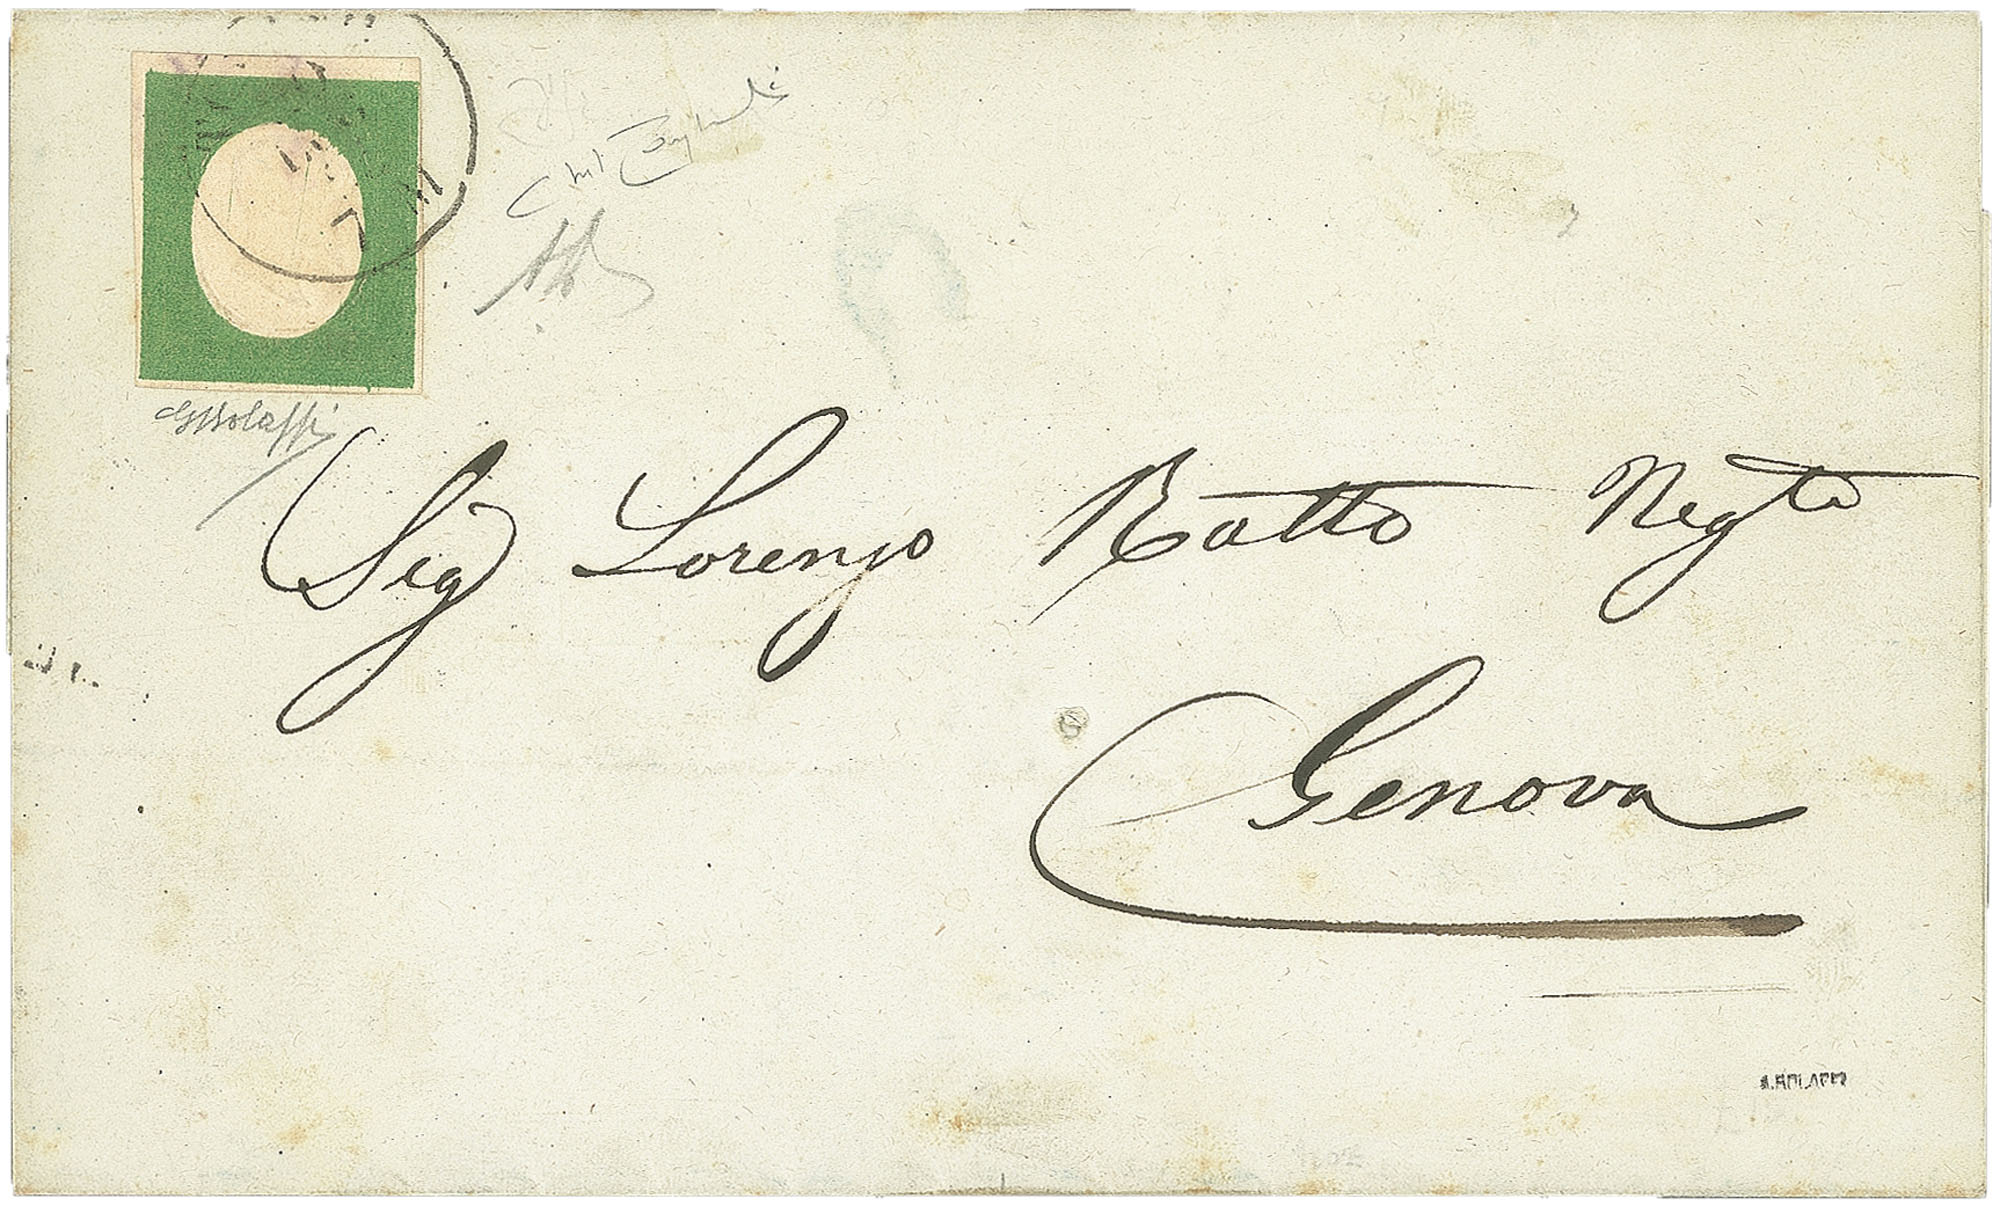 GBolaffi
Sig Lorenzo Ratto Negte
Genova
A. BOLAFFI